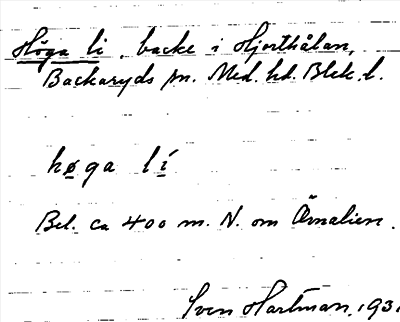 Höga li, backe i Hjorthålan,
Backaryds sn. Med. hd. Blek. l.
høga lí
Bel. ca 400 m. N. om Ämalien.
Sven Hartman, 193